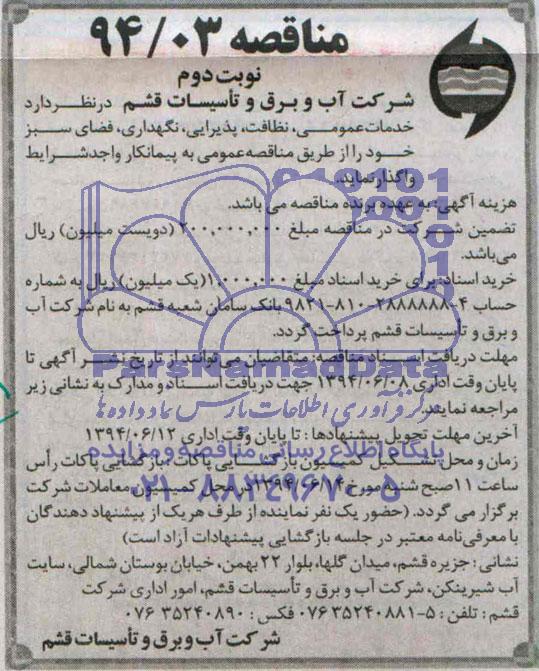 مناقصه ۹۴/۰۳
نوبت دوم
شرکت آب و برق و تأسیسات قشم درنظردارد
خدمات‌عمومی، نظافت، پذیرایی، نگهداری، فضای سبز
خود را از طریق مناقصه‌عمومی به پیمانکار واجدشرایط
واگذارنماید.
هزینه آگهی: به عهده برنده مناقصه می باشد.
تضمین شرکت در مناقصه مبلغ ۲۰۰,۰۰۰,۰۰۰ (دویست میلیون) ریال
می‌باشد.
خرید اسناد: برای خرید اسناد مبلغ ۱,۰۰۰,۰۰۰(یک میلیون) ریال به شماره
حساب ۴-۲۸۸۸۸۸۸-۸۱۰-۹۸۲۱ بانک سامان شعبه قشم به نام شرکت آب
و برق و تأسیسات قشم پرداخت گردد.
مهلت دریافت اسناد مناقصه: متقاضیان می توانند از تاریخ نشر آگهی تا
پایان وقت اداری ۱۳۹۴/۰۶/۰۸ جهت دریافت اسناد و مدارک به نشانی زیر
مراجعه نمایند.
آخرین مهلت تحویل پیشنهادها : تا پایان وقت اداری ۱۳۹۴/۰۶/۱۲
زمان و محل تشکیل کمیسیون بازگشایی پاکات : بازگشایی پاکات رأس
ساعت ۱۱ صبح شنبه مورخ ۱۳۹۴/۰۶/۱۴ در محل کمیسیون معاملات شرکت
برگزار می گردد. (حضور یک نفر نماینده از طرف هریک از پیشنهاد دهندگان
با معرفی‌نامه معتبر در جلسه بازگشایی پیشنهادات آزاد است)
نشانی : جزیره قشم، میدان گلها، بلوار ۲۲ بهمن، خیابان بوستان شمالی، سایت
آب شیرینکن، شرکت آب و برق و تأسیسات قشم، امور اداری شرکت
قشم : تلفن : ۵-۰۷۶۳۵۲۴۰۸۸۱ فکس : ۰۷۶۳۵۲۴۰۸۹۰
شرکت آب و برق و تأسیسات قشم
ParsNamadData
مرکز فرآوری اطلاعات پارس نماد داده ها
پایگاه اطلاع رسانی مناقصه و مزایده
۰۲۱-۸۸۳۴۹۶۷۰-۵